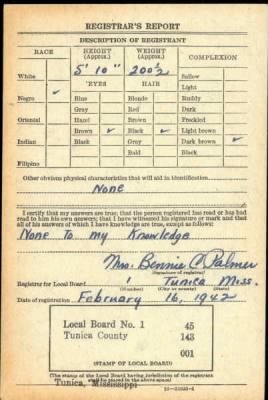 REGISTRAR'S REPORT
DESCRIPTION OF REGISTRANT
RACE HEIGHT (Approx.) WEIGHT (Approx.) COMPLEXION
5' 10" 200½
White Sallow
EYES HAIR Light
Negro ✓ Blue Blonde Ruddy
Gray Red Dark
Oriental Hazel Brown Freckled
Brown ✓ Black ✓ Light brown
Indian Black Gray Dark brown ✓
Bald Black
Filipino
Other obvious physical characteristics that will aid in identification
None
I certify that my answers are true; that the person registered has read or has had
read to him his own answers; that I have witnessed his signature or mark and that
all of his answers of which I have knowledge are true, except as follows:
None to my Knowledge
Mrs. Bennie C. Palmer
(Signature of registrar)
Registrar for Local Board Tunica Miss.
(Number) (City or county) (State)
Date of registration February 16, 1942
Local Board No. 1 45
Tunica County 143
001
(STAMP OF LOCAL BOARD)
(The stamp of the Local Board having jurisdiction of the registrant
shall be placed in the above space)
Tunica, Mississippi